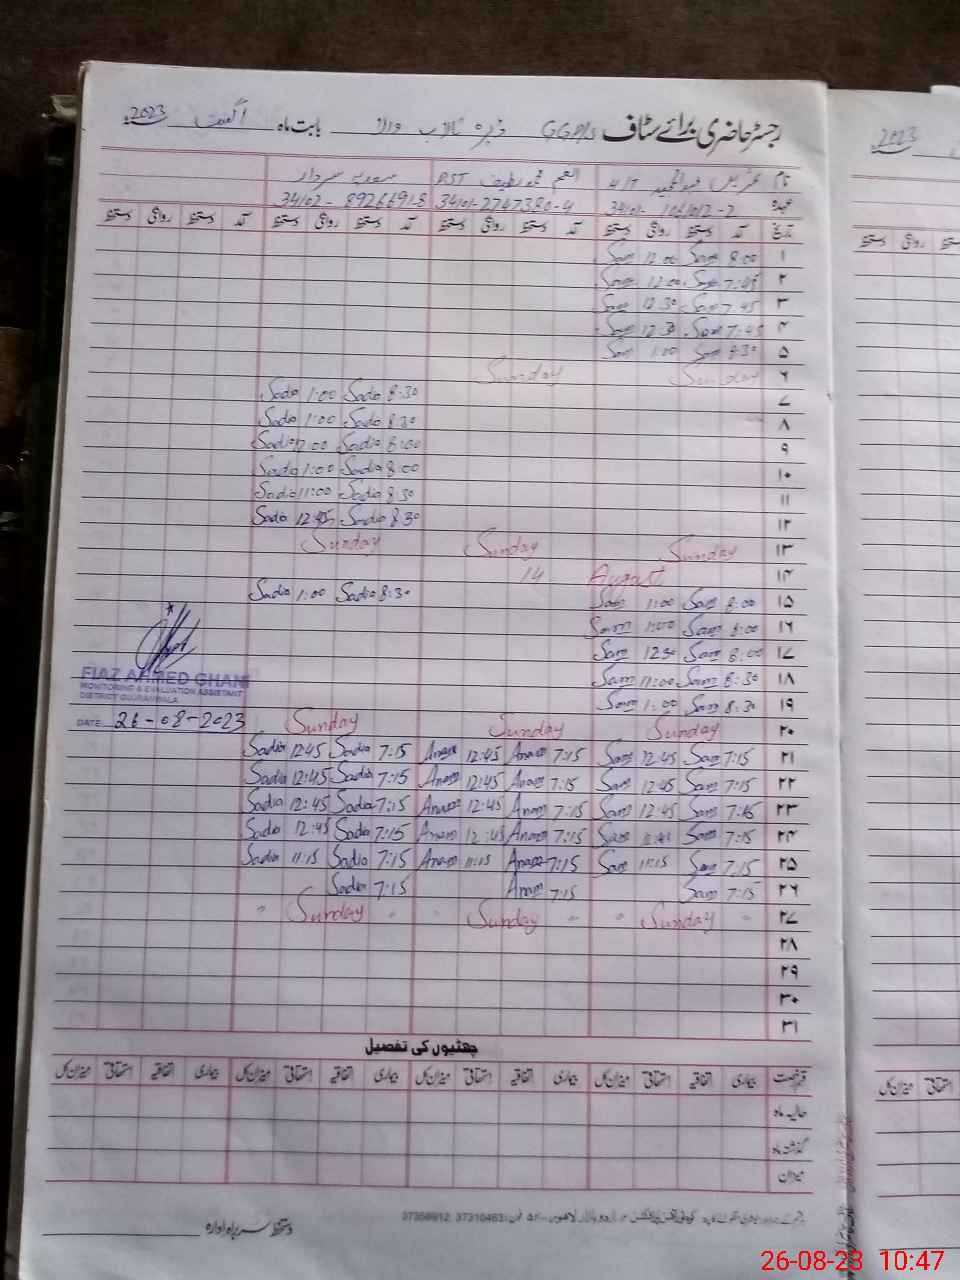 رجسٹر حاضری برائے سٹاف GGP/S ڈیرہ تالاب والا بابت ماہ اگست 2023ء
نام H/T PST سعدیہ سردار
عہدہ 34101- 34101-2747380-4 34102- 8926691-8
تاریخ آمد دستخط روانگی دستخط آمد دستخط روانگی دستخط آمد دستخط روانگی دستخط آمد دستخط روانگی دستخط
۱ 8:00 Sam 12:00 Sam
۲ 7:45 Sam 12:00 Sam
۳ 7:45 Sam 12:30 Sam
۴ 7:45 Sam 12:30 Sam
۵ 8:30 Sam 1:00 Sam
۶ Sunday Sunday
۷ 8:30 Sadia 1:00 Sadia
۸ 8:30 Sadia 1:00 Sadia
۹ 8:00 Sadia 12:00 Sadia
۱۰ 8:00 Sadia 1:00 Sadia
۱۱ 8:30 Sadia 11:00 Sadia
۱۲ 8:30 Sadia 12:45 Sadia
۱۳ Sunday Sunday Sunday
۱۴ 14 August
۱۵ 8:00 Sam 1:00 Sam 8:30 Sadia 1:00 Sadia
۱۶ 8:00 Sam 1:00 Sam
۱۷ 8:00 Sam 12:30 Sam
۱۸ 8:30 Sam 11:00 Sam
۱۹ 8:30 Sam 1:00 Sam
FIAZ AHMED GHANI
MONITORING & EVALUATION ASSISTANT
DISTRICT GUJRANWALA
DATE: 26-08-2023
۲۰ Sunday Sunday Sunday
۲۱ 7:15 Sam 12:45 Sam 7:15 Anam 12:45 Anam 7:15 Sadia 12:45 Sadia
۲۲ 7:15 Sam 12:45 Sam 7:15 Anam 12:45 Anam 7:15 Sadia 12:45 Sadia
۲۳ 7:15 Sam 12:45 Sam 7:15 Anam 12:45 Anam 7:15 Sadia 12:45 Sadia
۲۴ 7:15 Sam 12:45 Sam 7:15 Anam 12:45 Anam 7:15 Sadia 12:45 Sadia
۲۵ 7:15 Sam 11:15 Sam 7:15 Anam 11:15 Anam 7:15 Sadia 11:15 Sadia
۲۶ 7:15 Sam 7:15 Anam 7:15 Sadia
۲۷ " Sunday " " Sunday " " Sunday "
۲۸
۲۹
۳۰
۳۱
چھٹیوں کی تفصیل
قسم رخصت بیماری اتفاقیہ استحقاقی میزان کل بیماری اتفاقیہ استحقاقی میزان کل بیماری اتفاقیہ استحقاقی میزان کل بیماری اتفاقیہ استحقاقی میزان کل
حالیہ ماہ
گذشتہ ماہ
میزان
دستخط سربراہ ادارہ
37310463, 37358912
2023
26-08-23 10:47